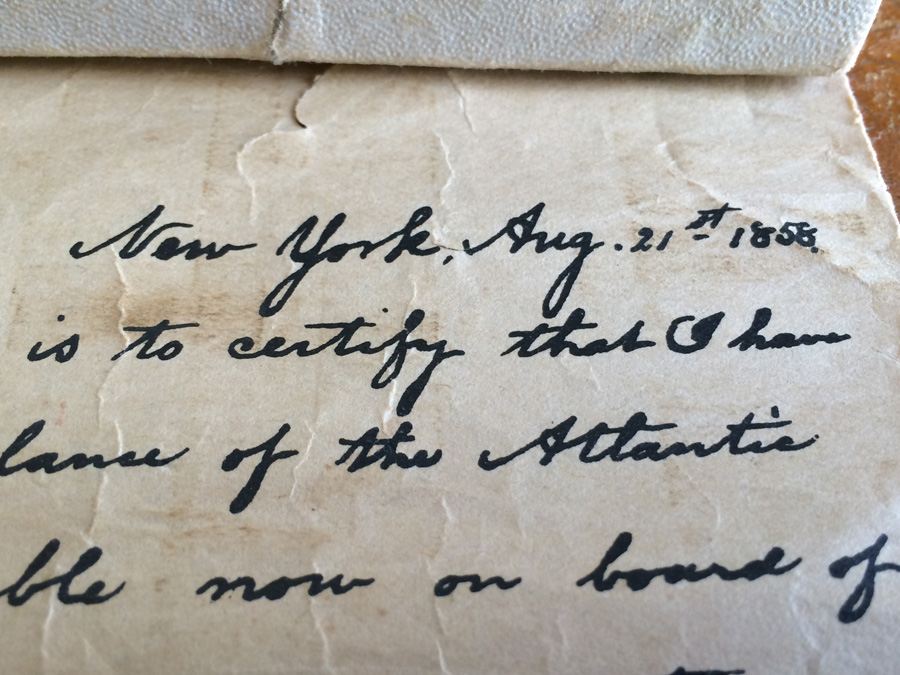 New York, Aug. 21st 1858.
is to certify that I have
lance of the Atlantic
ble now on board of